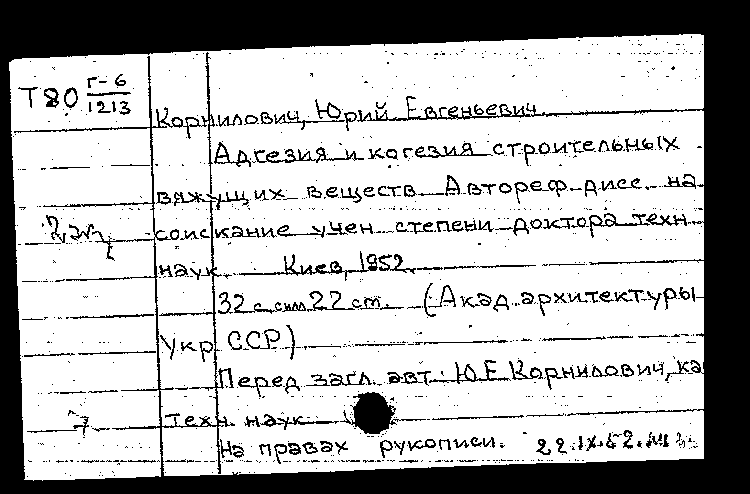 Т80 Г-6
1213
Корнилович, Юрий Евгеньевич.
Адгезия и когезия строительных
вяжущих веществ. Автореф. дисс. на
соискание учен. степени доктора техн.
наук. Киев, 1952.
32 с. 22 ст. (Акад. архитектуры
Укр ССР)
Перед загл. авт.: Ю.Е. Корнилович, ка
техн. наук
7
На правах рукописи. 22.IX.52.